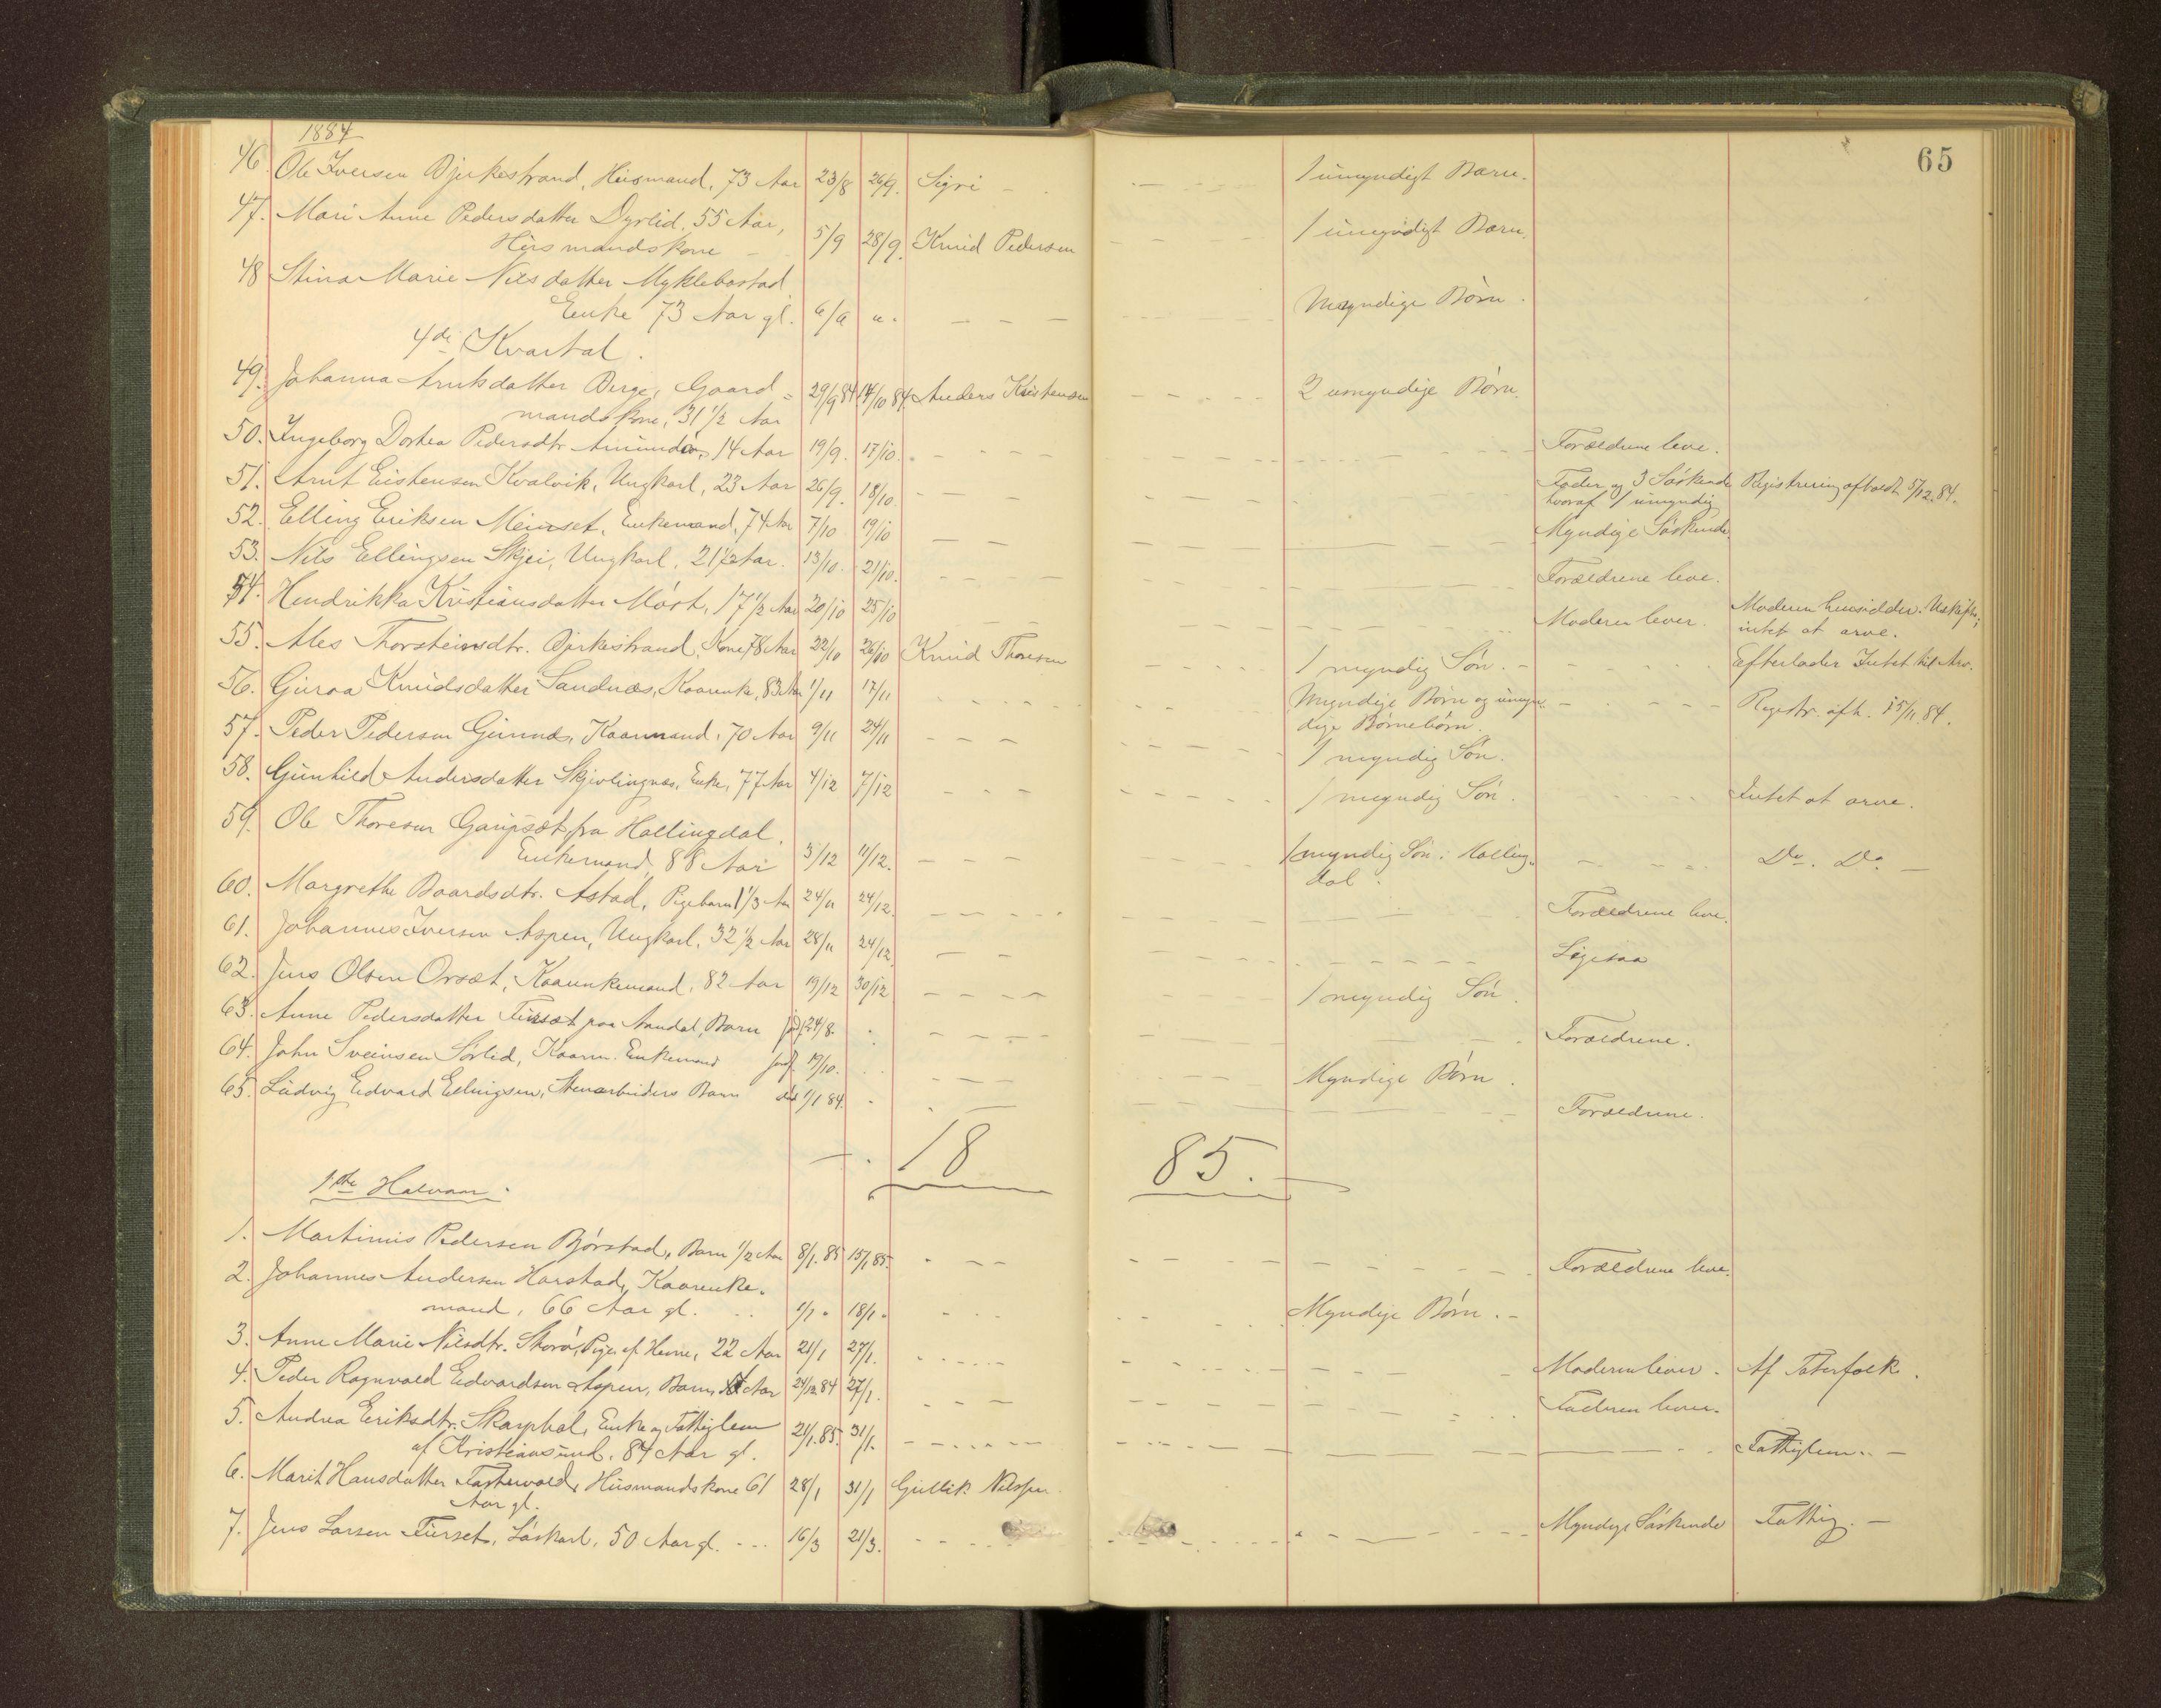 65
1884
46. Ole Iversen Bjerkestrand, Husmand, 73 Aar 23/8 26/9. Sigri 1 umyndigt Barn.
47. Mari Anne Pedersdatter Dyrlid, 55 Aar,
Husmandskone 5/9 28/9. Knud Pedersen 1 umyndigt Barn.
48 Stina Marie Nilsdatter Myklebostad
Enke 73 Aar gl. 6/9 ". Myndige Børn.
4de Kvartal.
49. Johanna Arntsdatter Berge, Gaard= 29/9 84 14/10 84. Anders Kristensen 2 umyndige Børn.
mandskone, 31 1/2 Aar
50. Ingeborg Dortea Pedersdtr. 14 Aar 19/9. 17/10. Forældrene leve.
51. Arnt Eistensen Kvalvik, Ungkarl, 23 Aar 26/9. 18/10 Fader og 3 Søskende Registrering afholdt 5/12. 84.
hvoraf 1 umyndig
52. Elling Eriksen Meinset, Enkemand, 74 Aar 7/10 19/10 Myndige Søskende.
53. Nils Ellingsen Skjei, Ungkarl, 21 1/2 Aar. 13/10. 21/10. Forældrene leve.
54. Hendrikka Kristiansdatter Mørk, 17 1/2 Aar 20/10 25/10 Moderen lever. Moderen hensidder i Uskifte;
intet at arve.
55. Ales Thorsteinsdtr. Bjerkestrand, Kone, 78 Aar 22/10 26/10 Knud Thoresen 1 myndig Søn. Efterlader Intet til Arv.
56. Guroa Knudsdatter Sandnæs, Kaarenke, 83 Aar 1/11 17/11 Myndige Børn og umyn- Registr. afh. 25/11. 84.
dige Børnebørn.
57. Peder Pedersen Gimnæs, Kaarmand, 70 Aar 9/11 24/11 1 myndig Søn.
58. Gunhild Andersdatter Skjevlingnæs, Enke, 77 Aar 4/12 7/12 1 myndig Søn. Intet at arve.
59. Ole Thoresen Garnsæt fra Hallingdal,
Enkemand, 88 Aar 3/12 11/12. 1 myndig Søn i Halling-
dal. Do. Do.
60. Margrethe Baardsdtr. Astad, Pigebarn 1 1/3 Aar 24/11 24/12. Forældrene leve.
61. Johannes Iversen Aspen, Ungkarl, 32 1/2 Aar 28/11 24/12. Ligesaa
62. Jens Olsen Orsæt, Kaarenkemand, 82 Aar 19/12 30/12 1 myndig Søn.
63. Anne Pedersdatter Fursæt paa Aandal, Barn 24/8. Forældrene.
64. John Sveinsen Sørlid, Kaarm. Enkemand 19/10. Myndige Børn.
65. Ludvig Edvard Ellingsen, Stenarbeiders Barn 1/1 84. Forældrene.
18 85.
1ste Halvaar.
1. Martinus Pedersen Bjørstad, Barn 1/2 Aar 8/1. 85 15/1 85. Forældrene leve.
2. Johannes Andersen Harstad, Kaarenke-
mand, 66 Aar gl. 1/1 " 18/1 " Myndige Børn.
3. Anne Marie Nilsdtr. Skorø, Pige af Hevne, 22 Aar 21/1 27/1. Moderen lever. Af Taterfolk.
4. Peder Ragnvald Edvardsen Aspen, Barn, Aar 24/12 84 27/1. Faderen lever.
5. Andrea Eriksdtr. Skarphol, Enke og Fattiglem 21/1. 85. 31/1. Fattiglem.
af Kristiansund, 84 Aar gl.
6. Marit Hansdatter Fostervold, Husmandskone 61 28/1 31/1 Gullik Nilssen
Aar gl.
7. Jens Larsen Furset, Løskarl, 50 Aar gl. 16/3 21/3. Myndige Søskende Fattig.